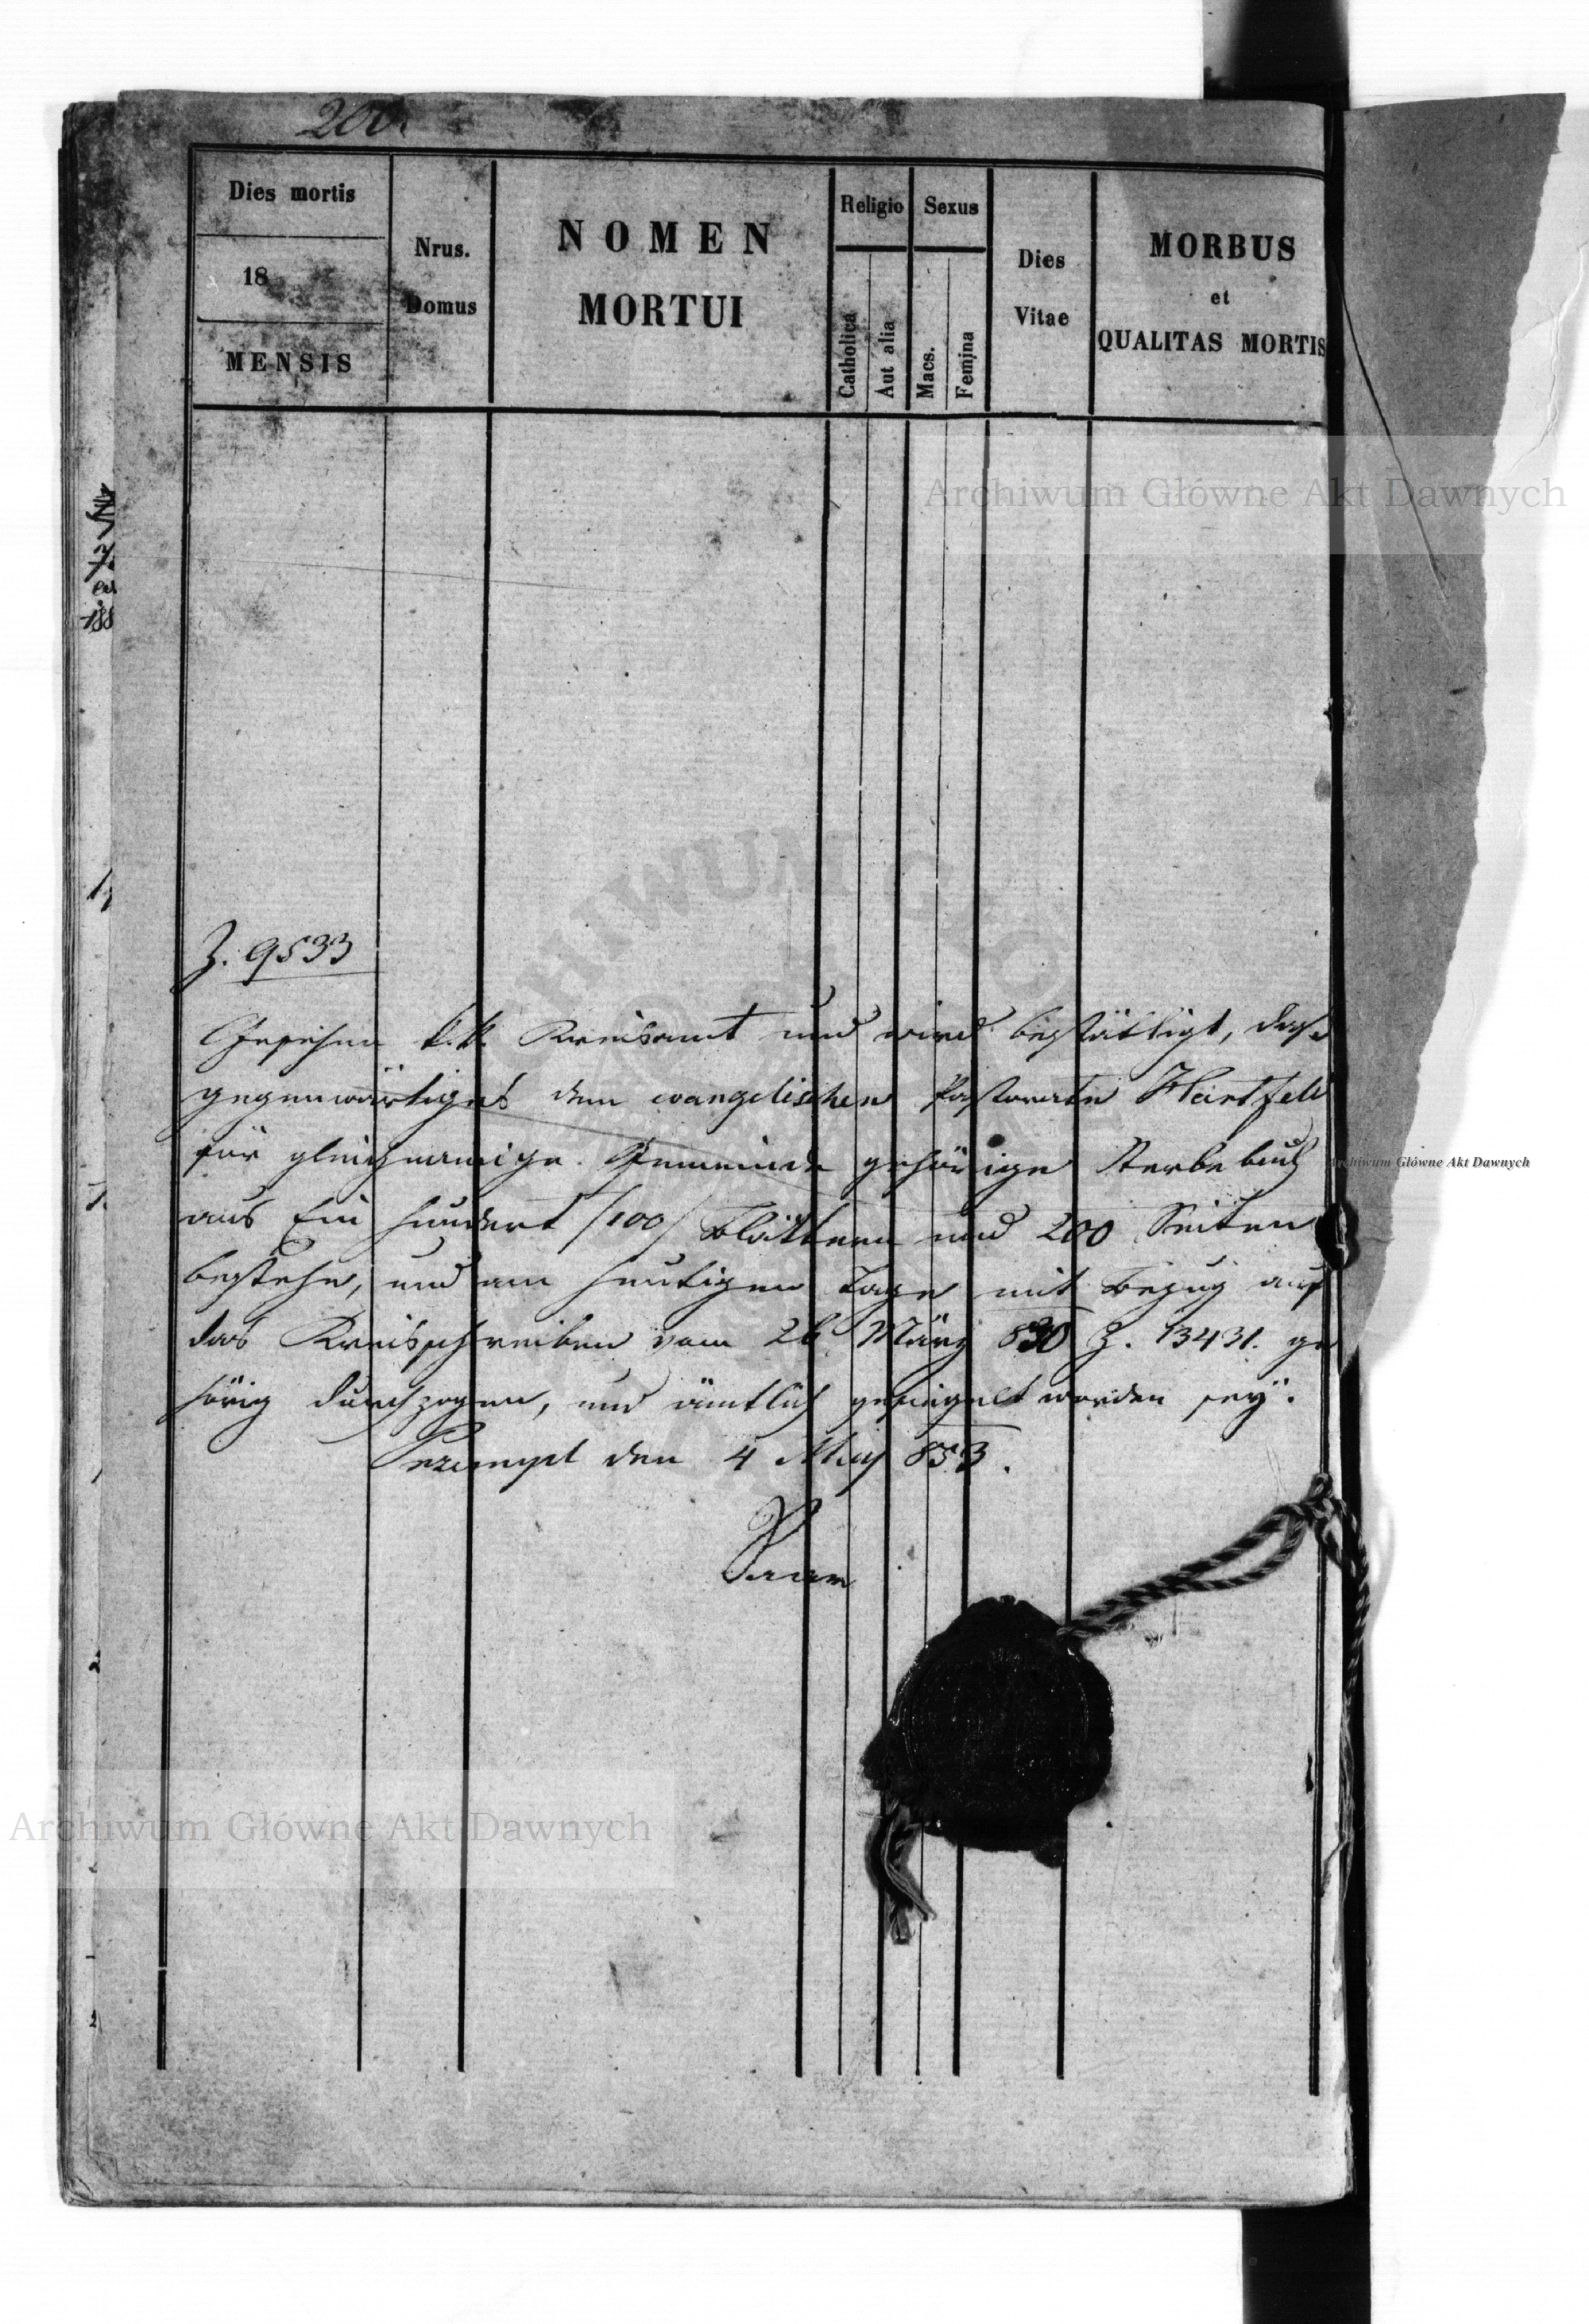 200.
Dies mortis
18
MENSIS
Nrus.
Domus
NOMEN
MORTUI
Religio
Catholica
Aut alia
Sexus
Macs.
Femina
Dies
Vitae
MORBUS
et
QUALITAS MORTIS
Z. 9533
Gesehen k.k. Kreisamt und wird bestättigt, daß
gegenwärtiges dem evangelischen Pastorate Hartfeld
für gleichnamige Gemeinde gehörige Sterbebuch
aus Ein hundert /100/ Blättern und 200 Seiten
bestehe, und am heutigen Tage mit Bezug auf
das Kreisschreiben vom 26 März 830 Z. 13431. ge
hörig durchzogen, und ämtlich gesiegelt worden seÿ.
Przemysl den 4 May 853.
Archiwum Główne Akt Dawnych
Archiwum Główne Akt Dawnych
Archiwum Główne Akt Dawnych